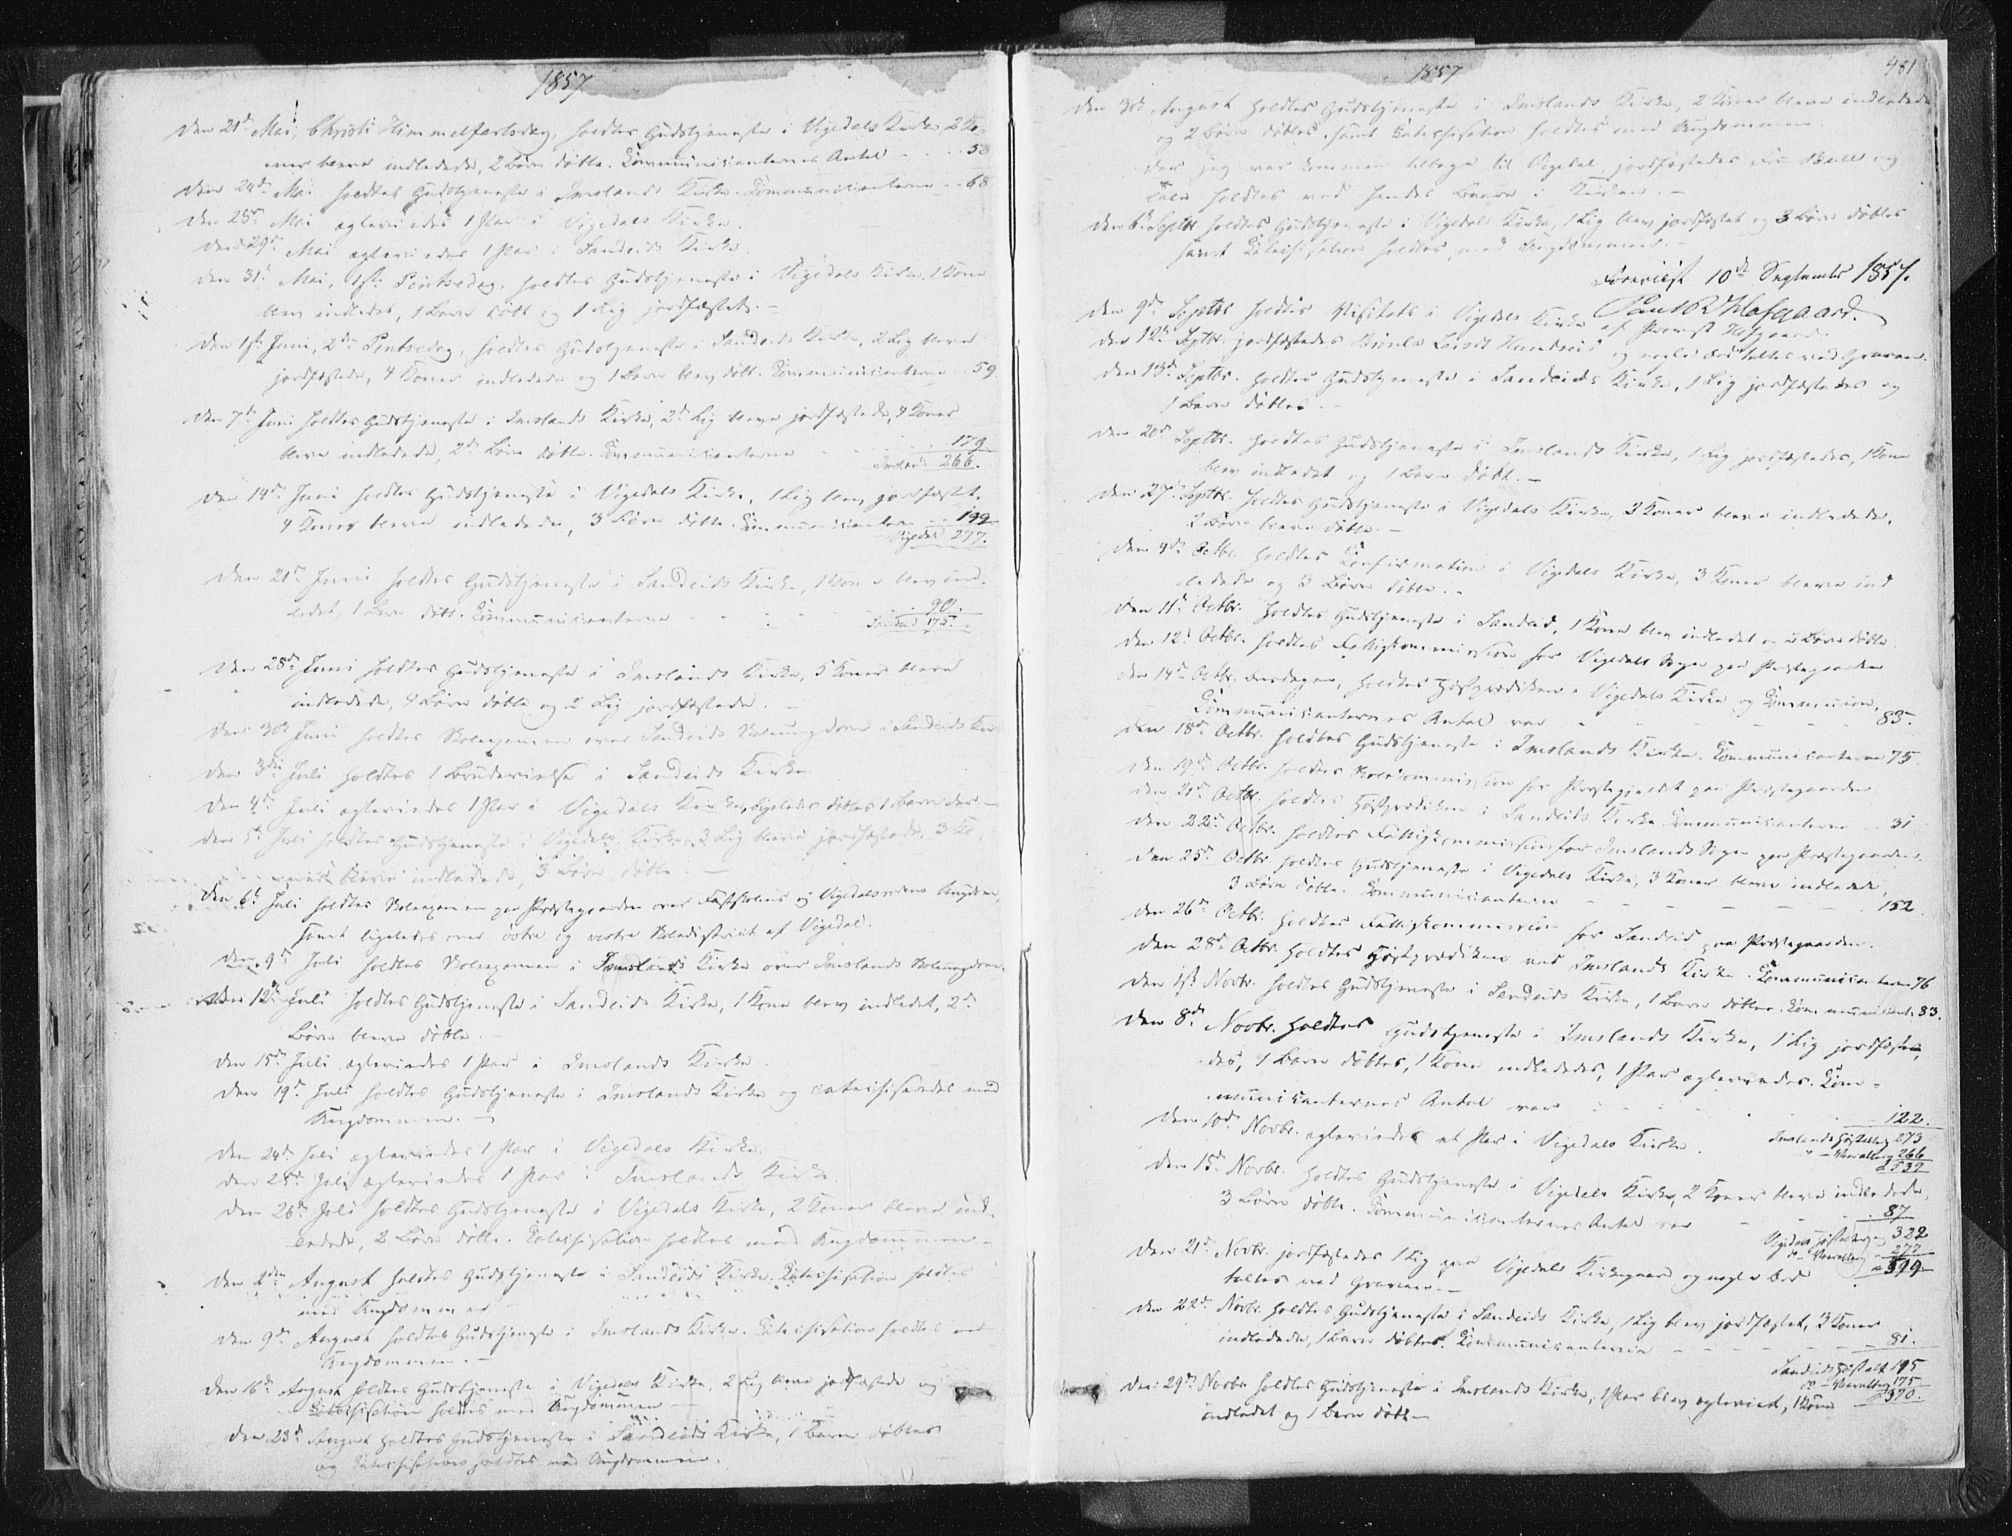 1857
Den 21de Mai, Christi Himmelfartsdag, holdtes Gudstjeneste i Vigedals Kirke, 2 Ko-
ner bleve indledede, 2 Børn døbte. Communicanternes Antal - - - 58
Den 24de Mai holdtes Gudstjeneste i Imslands Kirke. Communicanterne - - 68
Den 28de Mai egteviedes 1 Par i Vigedals Kirke.
Den 29de Mai egteviedes 1 Par i Sandeids Kirke.
Den 31te Mai, 1ste Pintsedag, holdtes Gudstjeneste i Vigedals Kirke, 1 Kone
blev indledet, 1 Barn døbt og 1 Lig jordfæstet. -
Den 1ste Juni, 2den Pintsedag, holdtes Gudstjeneste i Sandeids Kirke, 2 Lig bleve
jordfæstede, 4 Koner indledede og 1 Barn blev døbt. Communicanterne - 59
Den 7de Juni holdtes Gudstjeneste i Imslands Kirke, 2de Lig bleve jordfæstede, 4 Koner
bleve indledede, 2de Børn døbte. Communicanterne - - - 179
Imsland 266.
Den 14de Juni holdtes Gudstjeneste i Vigedals Kirke, 1 Lig blev jordfæstet,
4 Koner bleve indledede, 3 Børn døbte. Communicanterne - - 199
Vigedal 277.
Den 21de Juni holdtes Gudstjeneste i Sandeids Kirke, 1 Kone blev ind-
ledet, 1 Barn døbt. Communicanterne - - - 90.
Sandeid 175.
Den 28de Juni holdtes Gudstjeneste i Imslands Kirke, 5 Koner bleve
indledede, 4 Børn døbte og 2 Lig jordfæstede. -
Den 30te Juni holdtes Skoleexamen over Sandeids Skoleungdom i Sandeids Kirke
Den 3die Juli holdtes 1 Brudevielse i Sandeids Kirke.
Den 4de Juli egteviedes 1 Par i Vigedals Kirke, ligeledes døbtes 1 Barn der -
Den 5te Juli holdtes Gudstjeneste i Vigedals Kirke, 3 Lig bleve jordfæstede, 3 Ko-
ner bleve indledede, 3 Børn døbte. -
Den 6te Juli holdtes Skoleexamen paa Præstegaarden over Fastskolens og Ungdom,
samt ligeledes over østre og vestre Skoledistrict af Vigedal.
Den 9de Juli holdtes Skoleexamen i Imslands Kirke over Imslands Skoleungdom.
Den 12te Juli holdtes Gudstjeneste i Sandeids Kirke, 1 Kone blev indledet, 2de
Børn bleve døbte. -
Den 15de Juli egteviedes 1 Par i Imslands Kirke.
Den 19de Juli holdtes Gudstjeneste i Imslands Kirke og catechiseredes med
Ungdommen. -
Den 24de Juli egteviedes 1 Par i Vigedals Kirke.
Den 25de Juli egteviedes 1 Par i Imslands Kirke.
Den 26de Juli holdtes Gudstjeneste i Vigedals Kirke, 2 Koner bleve ind-
ledede, 2 Børn døbte. Catechisation holdtes med Ungdommen -
Den 2den August holdtes Gudstjeneste i Sandeids Kirke. Catechisation holdtes
med Ungdommen -
Den 9de August holdtes Gudstjeneste i Imslands Kirke. Catechisation holdtes med
Ungdommen. -
Den 16de August holdtes Gudstjeneste i Vigedals Kirke, 2 Lig bleve jordfæstede og
Catechisation holdtes med Ungdommen -
Den 23de August holdtes Gudstjeneste i Sandeids Kirke, 1 Barn døbtes
og Catechisation holdtes med Ungdommen.
1857
481
Den 30te August holdtes Gudstjeneste i Imslands Kirke, 2 Koner bleve indledede
og 2 Børn døbtes, samt Catechisation holdtes med Ungdommen.
Der jeg var kommen tilbage til Vigedal, jordfæstedes og
Tale holdtes ved hendes Baare i Kirken. -
Den 6te Septbr holdtes Gudstjeneste i Vigedals Kirke, 1 Lig blev jordfæstet og 3 Børn døbtes
samt Catechisation holdtes med Ungdommen. -
Foreviist 10de September 1857.
Den 9de Septbr holdtes Visitats i Vigedals Kirke af Provst Hofgaard.
Den 12te Septbr. jordfæstedes og nogle Ord taltes ved Graven.
Den 13de Septbr. holdtes Gudstjeneste i Sandeids Kirke, 1 Lig jordfæstedes og
1 Barn døbtes. -
Den 20de Septbr. holdtes Gudstjeneste i Imslands Kirke, 1 Lig jordfæstedes, 1 Kone
blev indledet og 1 Barn døbt. -
Den 27de Septbr. holdtes Gudstjeneste i Vigedals Kirke, 2 Koner bleve indledede,
2 Børn bleve døbte. -
Den 4de Octbr. holdtes Confirmation i Vigedals Kirke, 3 Koner bleve ind-
ledede og 3 Børn døbte. -
Den 11te Octbr. holdtes Gudstjeneste i Sandeid, 1 Kone blev indledet og 2 Børn døbte.
Den 12te Octbr. holdtes Fattigkommission for Vigedals Sogn paa Præstegaarden
Den 14de Octbr. Onsdagen, holdtes Høstprædiken i Vigedals Kirke og Communion,
Communicanternes Antal var - - - - 85.
Den 18de Octbr. holdtes Gudstjeneste i Imslands Kirke. Communicanterne 75.
Den 19de Octbr. holdtes Skolecommission for Præstegjeldet paa Præstegaarden.
Den 21de Octbr. holdtes Høstprædiken i Sandeids Kirke. Communicanterne - 31
Den 22de Octbr. holdtes Fattigkommission for Imslands Sogn paa Præstegaarden.
Den 25de Octbr. holdtes Gudstjeneste i Vigedals Kirke, 3 Koner bleve indledede,
3 Børn døbte. Communicanterne - - - - 152.
Den 26de Octbr. holdtes Fattigkommission for Sandeid paa Præstegaarden.
Den 28de Octbr. holdtes Høstprædiken ved Imslands Kirke. Communicanterne 76
Den 1ste Novbr. holdtes Gudstjeneste i Sandeids Kirke, 1 Barn døbtes. Communicant. 83.
Den 8de Novbr. holdtes Gudstjeneste i Imslands Kirke, 1 Lig jordfæste-
des, 1 Barn døbtes, 1 Kone indlededes, 1 Par egteviedes. Com-
municanternes Antal var - - - - 122.
Imslands Høstaltg 273
Den 10de Novbr. egteviedes et Par i Vigedals Kirke.
" - Vaaraltg 266
= 539
Den 15de Novbr. holdtes Gudstjeneste i Vigedals Kirke, 2 Koner bleve indledede,
3 Børn døbte. Communicanternes Antal var - - - 87
Vigedals Høstaltg 322
Do - Vaaraltg 277
= 599
Den 21de Novbr. jordfæstedes 1 Lig paa Vigedals Kirkegaard og nogle Ord
taltes ved Graven. -
Den 22de Novbr. holdtes Gudstjeneste i Sandeids Kirke, 1 Lig blev jordfæstet, 3 Koner
indledede, 1 Barn døbtes. Communicanterne - - - - 81.
Sandeids Høstalt 195
Do - Vaaraltg 175
= 370.
Den 29de Novbr. holdtes Gudstjeneste i Imslands Kirke, 1 Par blev egteviet, 1 Kone
indledet og 1 Barn døbt -